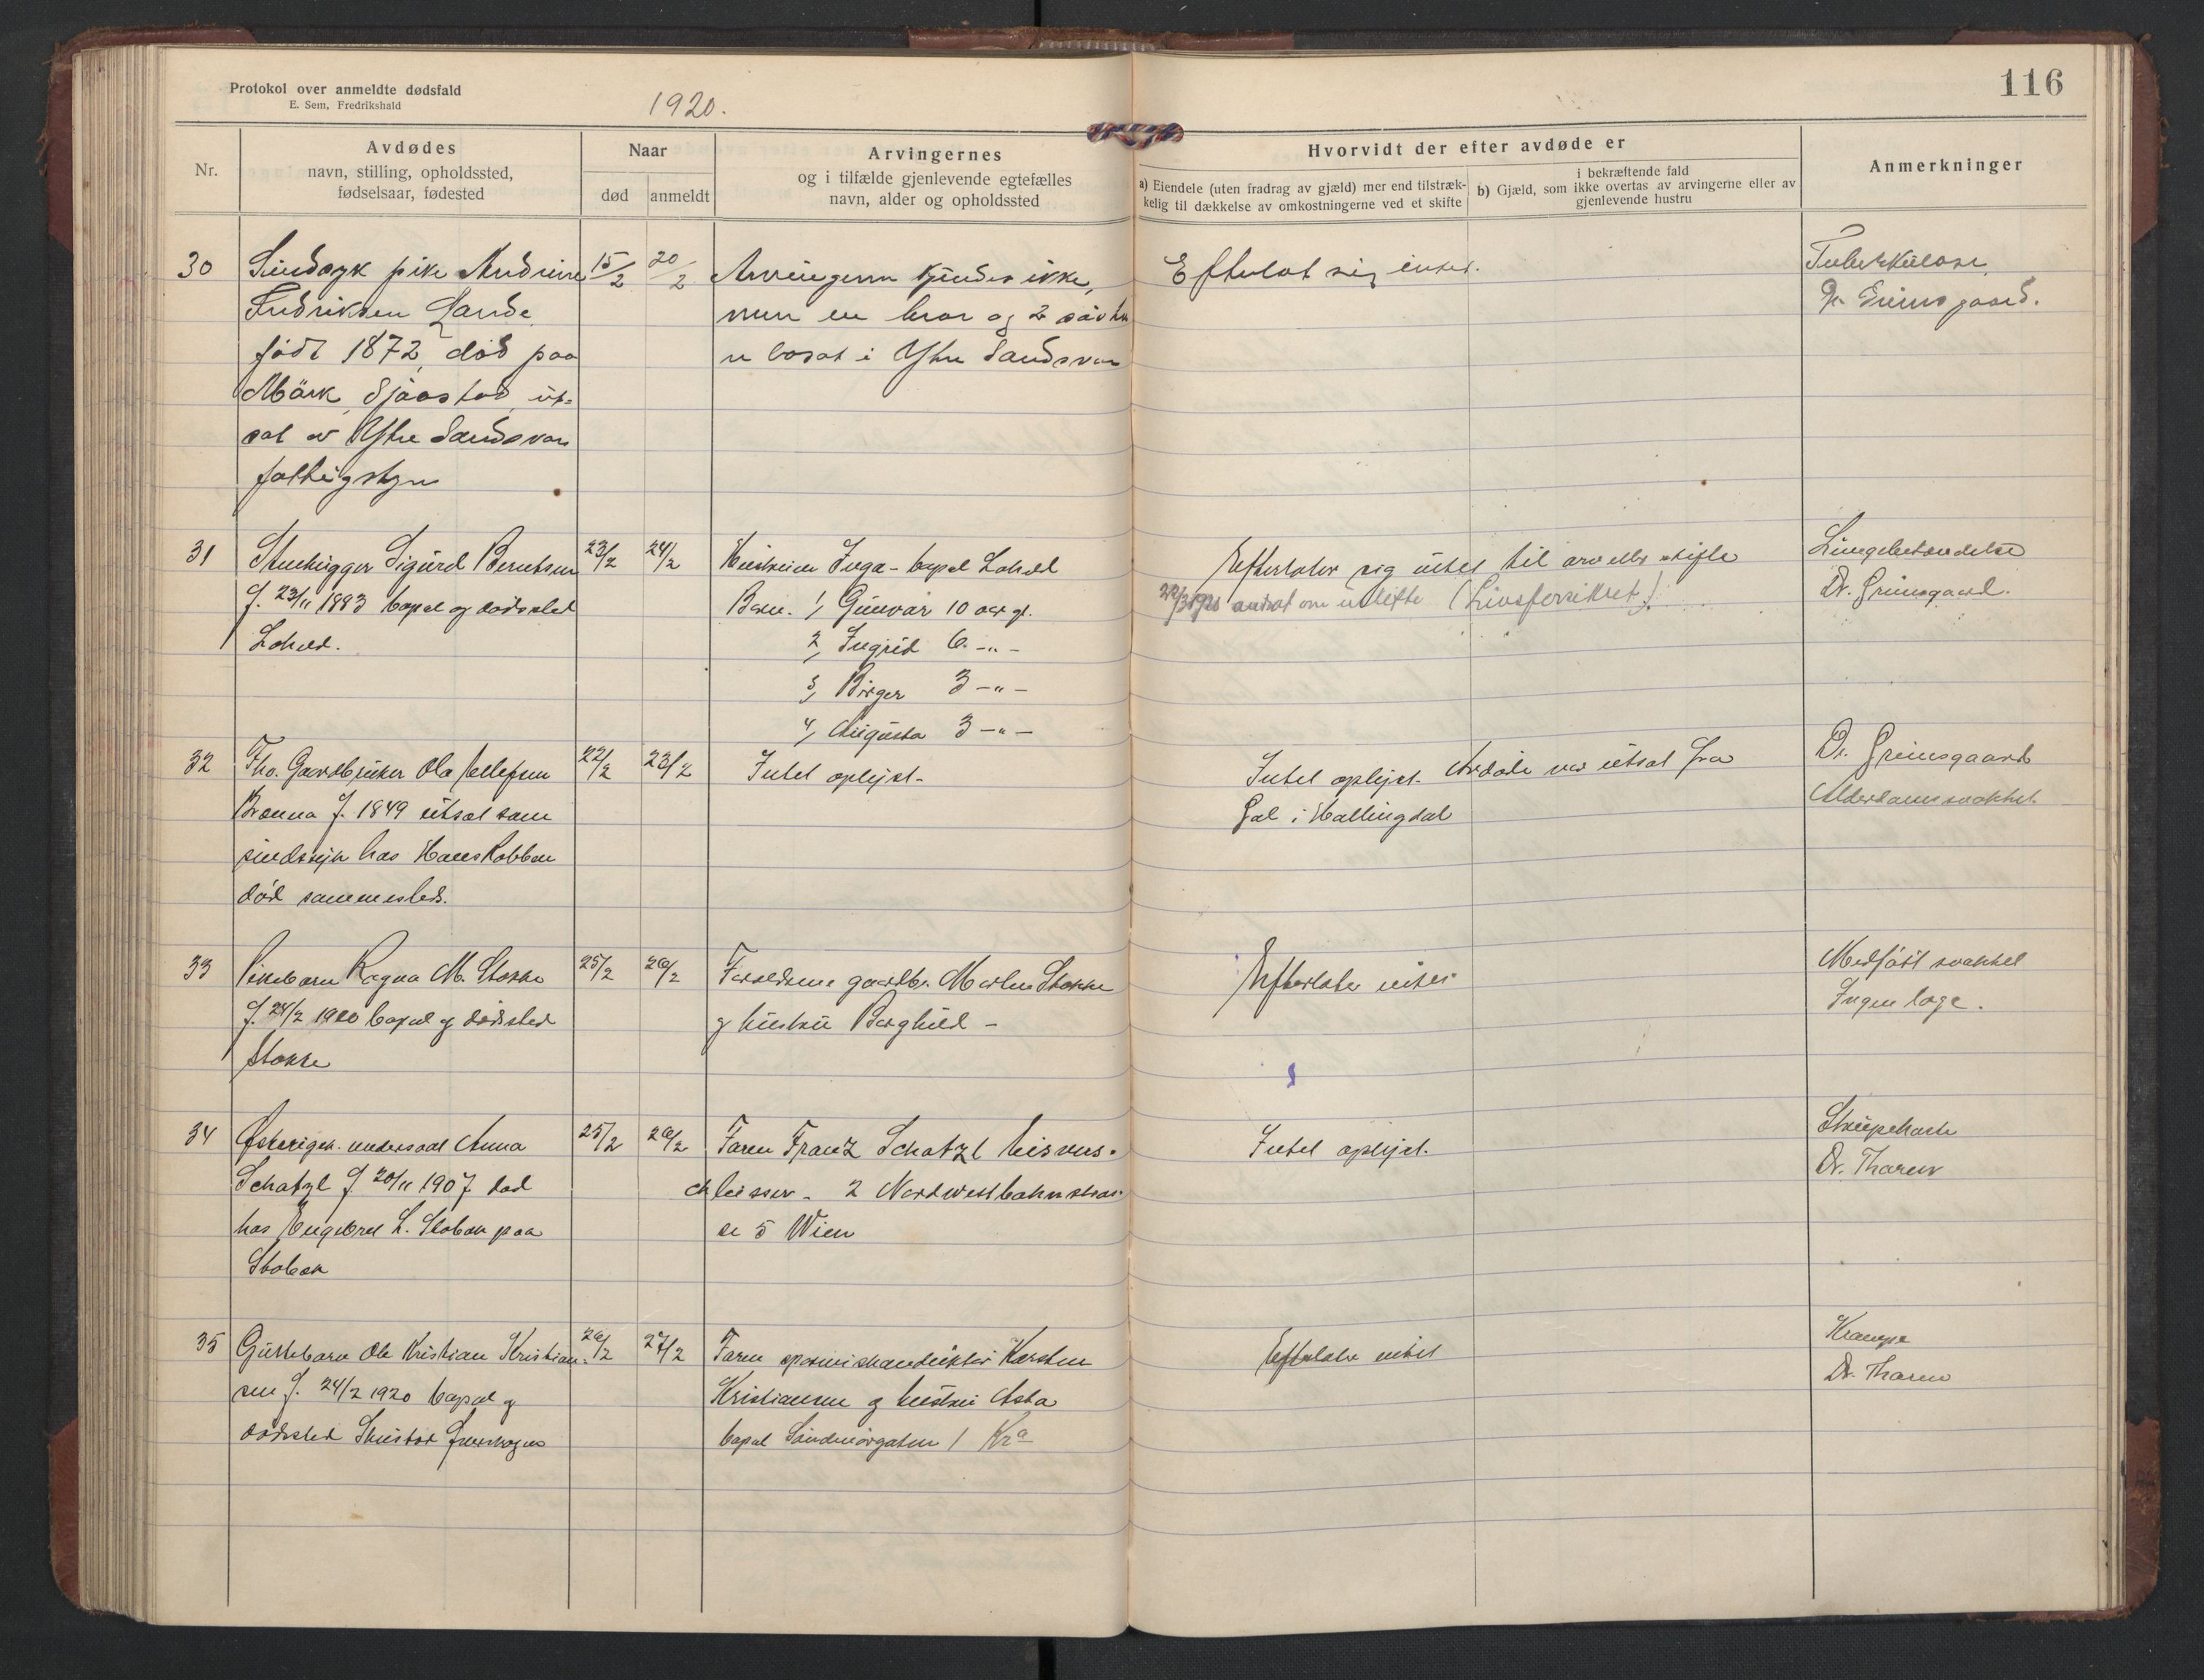 Protokol over anmeldte dødsfald
E. Sem, Fredrikshald
1920.
116
Nr.
Avdødes
navn, stilling, opholdssted,
fødselsaar, fødested
Naar
død
anmeldt
Arvingernes
og i tilfælde gjenlevende egtefælles
navn, alder og opholdssted
Hvorvidt der efter avdøde er
a) Eiendele (uten fradrag av gjæld) mer end tilstræk-
kelig til dækkelse av omkostningerne ved et skifte
i bekræftende fald
b) Gjæld, som ikke overtas av arvingerne eller av
gjenlevende hustru
Anmerkninger
30
Sindsyk pike Andrine
Fredriksen Lande
født 1872, død paa
Mørk Sjåstad ut-
sat av Ytre Sandsvær
fattigstyre
15/2
20/2
Arvingerne kjendes ikke,
men en bror og 2 søstre
er bosat i Ytre Sandsvær
Efterlot sig intet.
Tuberkulose
Dr. Grimsgaard.
31
Stenhugger Sigurd Berntsen
f. 23/11 1883 bopæl og dødssted
Lohed.
23/2
24/2
Hustruen Inga - bopæl Lohed
Barn. 1, Gunvår 10 aar gl.
2, Ingrid 6 -"-
3, Birger 3 -"-
4, Augusta 3 -"-
Efterlater sig intet til arv eller skifte
om (Livsforsikret)
Lungebetændelse
Dr. Grimsgaard.
32
Fho. Gaardbruker Ola Tollefsen
Brenna f. 1849 utsat som
sindssyk hos Hans Kobben
død sammesteds.
22/2
23/2
Intet oplyst.
Intet oplyst. Avdøde var utsat fra
Gol i Hallingdal
Dr. Grimsgaard
Alderdomssvakhet
33
Pikebarn Ragna M. Stokke
f. 24/2 1920 bopæl og dødssted
Stokke
25/2
26/2
Forældrene gaardbr. Martin Stokke
og hustru Borghild -
Efterlater intet
Medfødt svakhet
Ingen læge.
34
Østerigsk undersaat Anna
Schatzl f. 20/11 1907 død
hos Engebret L. paa
25/2
26/2
Faren Franz Schatzl
2 Nordwestbahnstras-
se 5 Wien
Intet oplyst.
Strupehoste
Dr. Tharem
35
Guttebarn Ole Kristian Kristian-
sen f. 24/2 1920 bopæl og
dødssted
26/2
27/2
Faren Karsten
Kristiansen og hustru Asta
bopæl 1 Kra
Efterlater intet
Krampe
Dr. Tharem